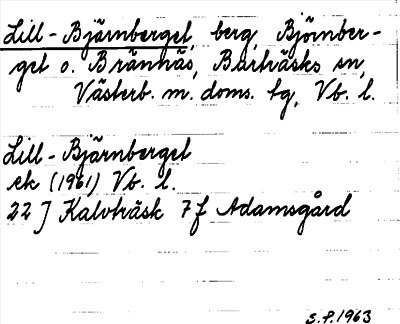 Lill-Bjärnberget, berg, Björnber-
get o. Brännäs, Burträsks sn,
Västerb. m. doms. tg, Vb. l.
Lill-Bjärnberget
ek (1961) Vb. l.
22 J Kalvträsk 7 f Adamsgård
S.P. 1963